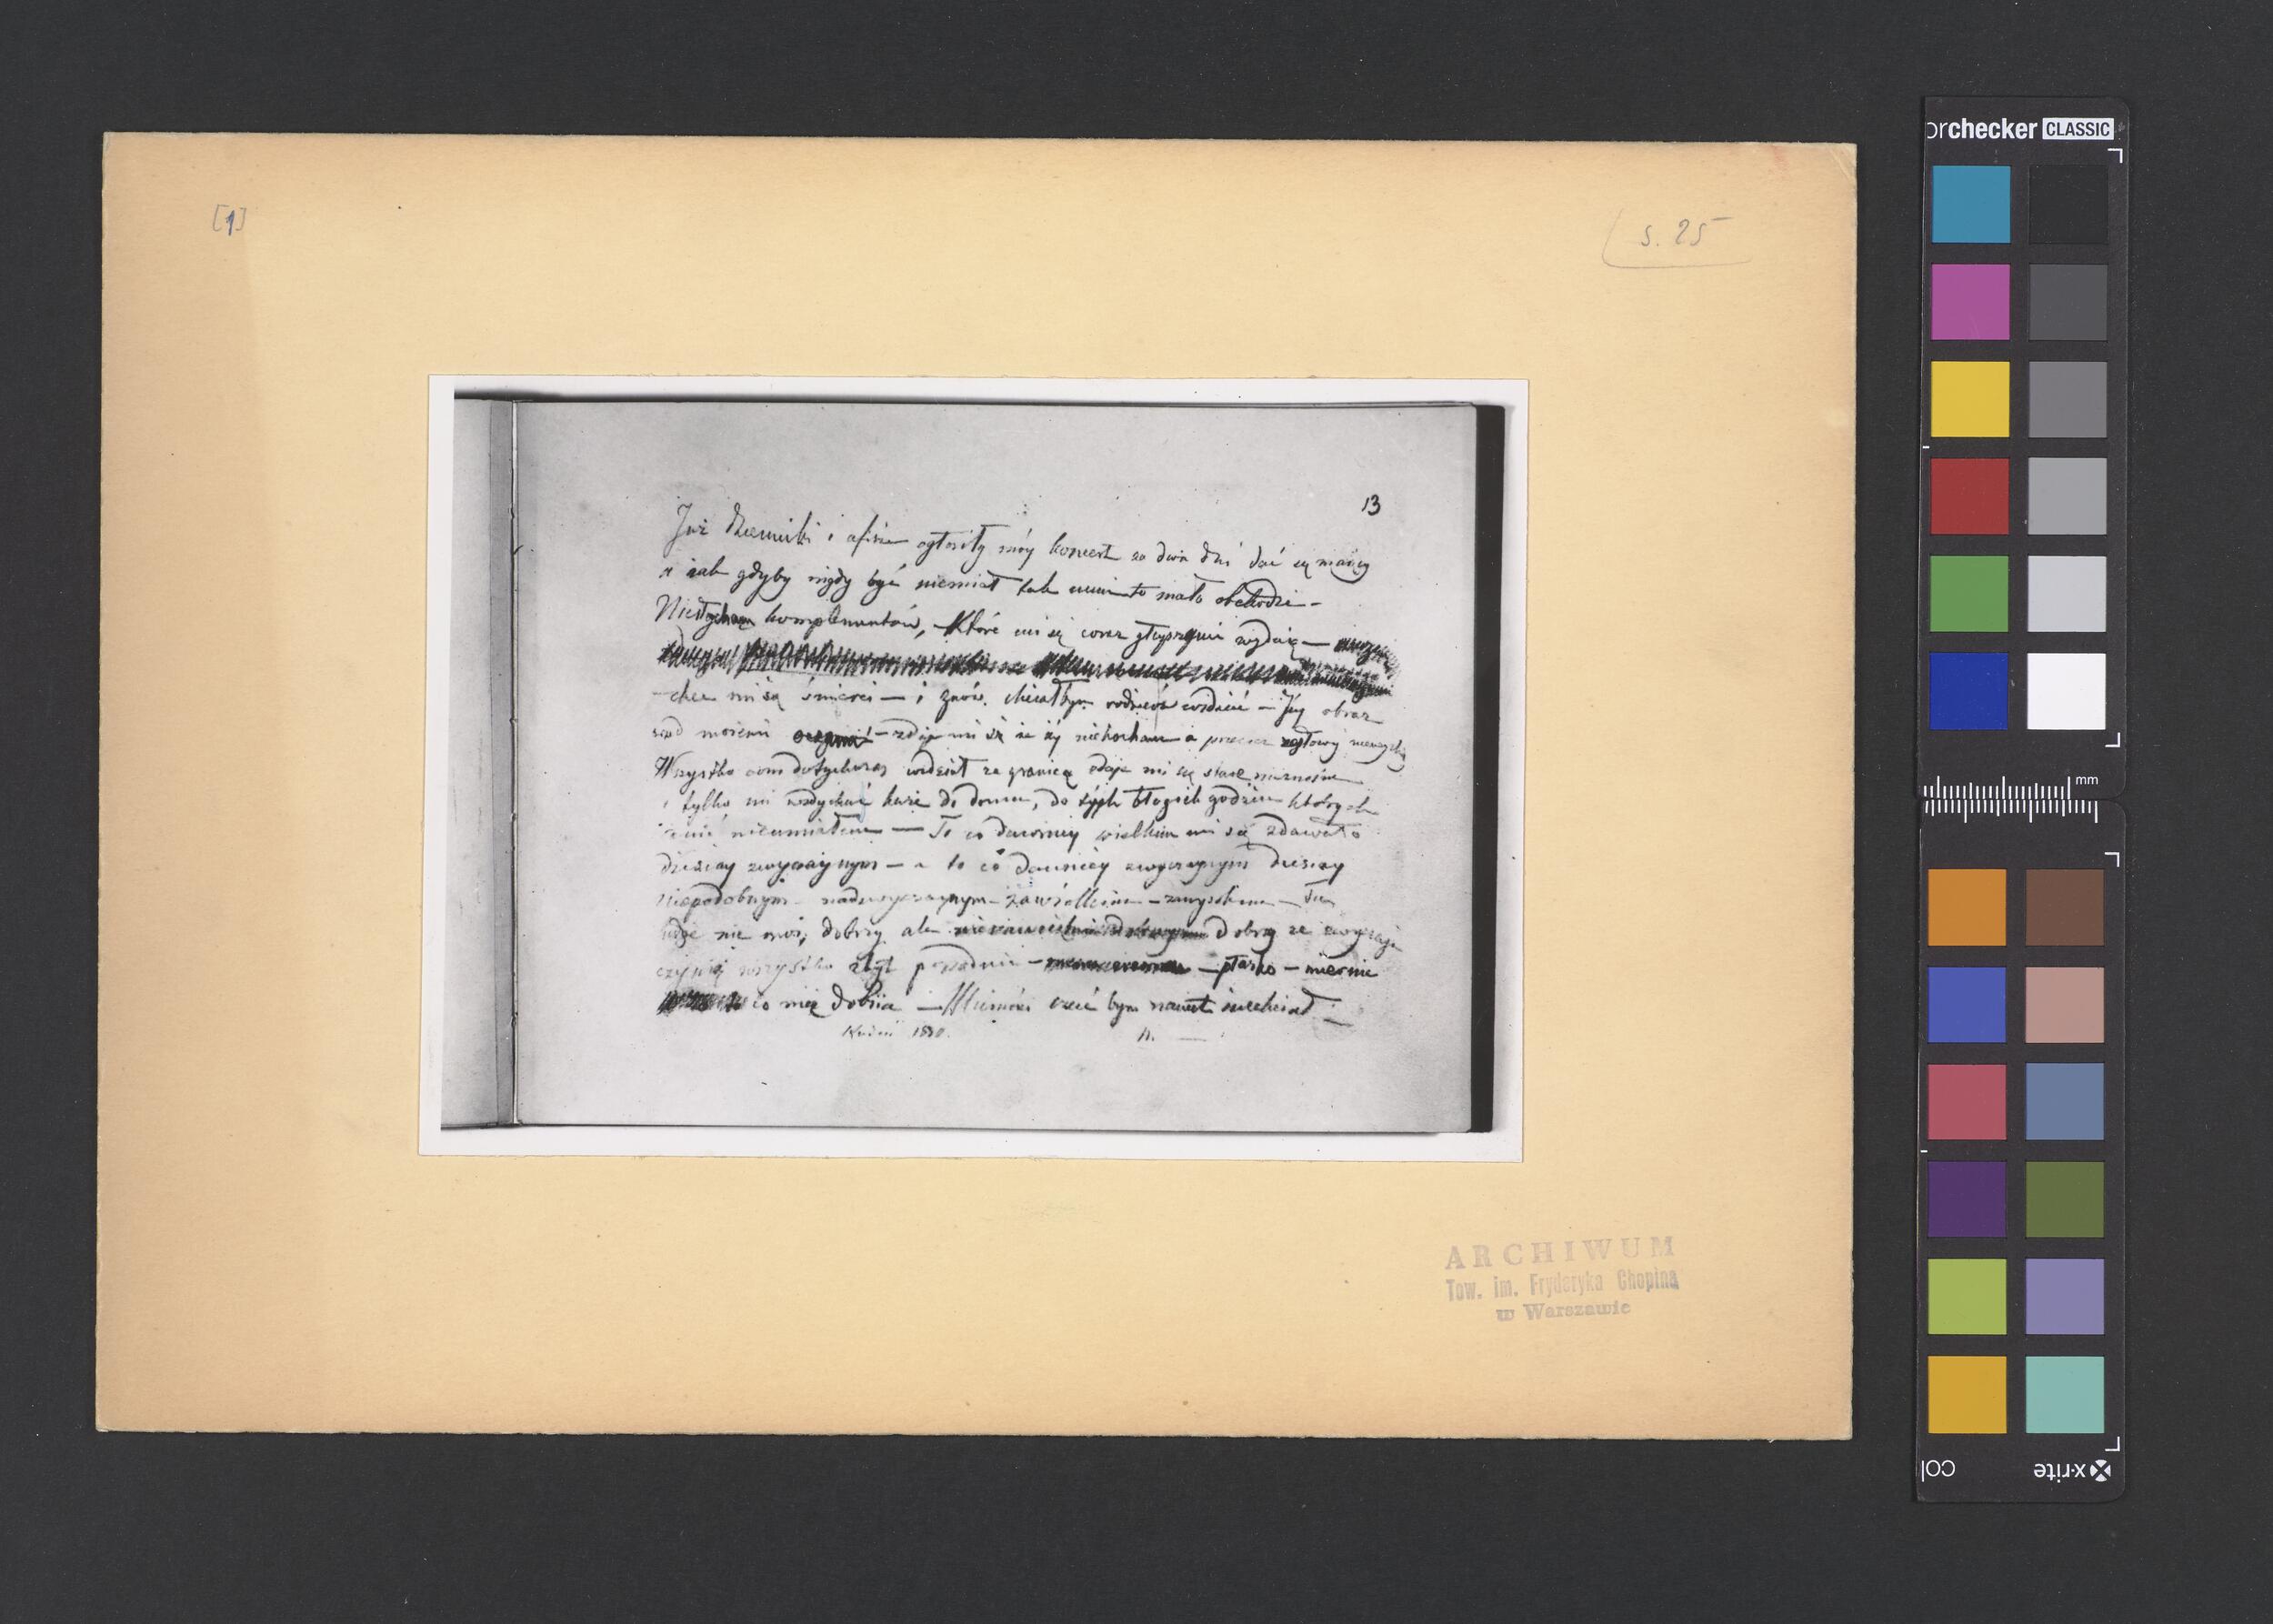 [1]
s. 25
13
Już dzienniki i afisze ogłosiły móy koncert za dwa dni dać się maiący
a jak gdyby nigdy być niemiał tak mnie to mało obchodzi –
Niesłucham komplementów, – które mi się coraz głupszemi wydaią –
– chce mi się śmierci – i znów chciałbym rodziców widzieć – Jéy obraz
stoi przed moiemi oczyma! – zdaje mi się że iéy niekocham a przecież z głowy niewychodzi
Wszystko com dotychczas widział za granicą zdaje mi się stare nieznośne
i tylko mi wzdychać każe do domu, do tych błogich godzin których
cenić nieumiałem – To co dawniey wielkim mi się zdawało
dzisiay zwyczaynym – a to co dawniéy zwyczaynym dzisiay
niepodobnym – nadzwyczaynym – zawielkiem – zawysokiem – Tu
ludzie nie moi; dobrzy ale dobrzy ze zwyczaju
czynią wszystko zbyt porządnie – płasko – miernie
co mię dobiia – Mierności czuć bym nawet niechciał –
1830.
ARCHIWUM
Tow. im. Fryderyka Chopina
w Warszawie
orchecker CLASSIC
mm
x-rite
col